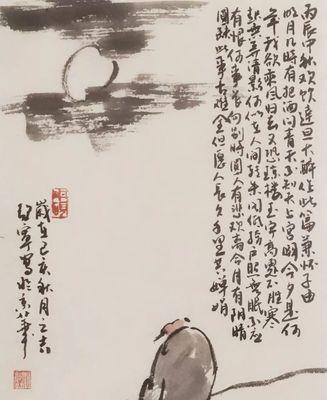 丙辰中秋欢饮达旦大醉作此篇兼怀子由
明月几时有把酒问青天不知天上宫阙今夕是何
年我欲乘风归去又恐琼楼玉宇高处不胜寒
起舞弄清影何似在人间转朱阁低绮户照无眠不应
有恨何事长向别时圆人有悲欢离合月有阴晴
圆缺此事古难全但愿人长久千里共婵娟
歲在己亥秋月之吉
寧写於京華